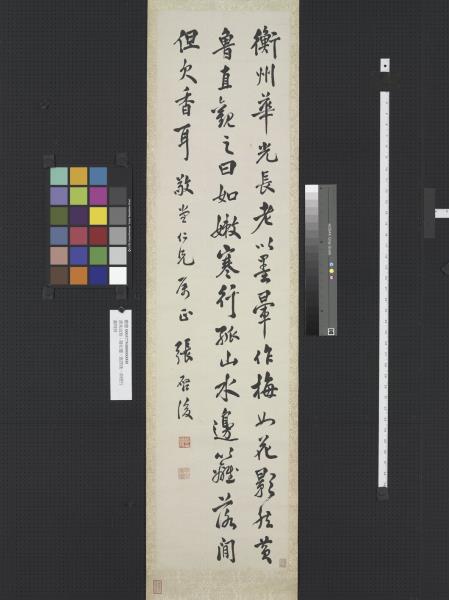 衡州華光長老以墨暈作梅如花影然黃
魯直觀之曰如嫩寒行孤山水邊籬落間
但欠香耳 敬堂仁兄屬正 張啓後